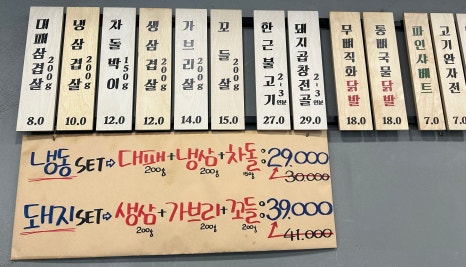 대패삼겹살 200g 8.0
냉삼겹살 200g 10.0
차돌박이 150g 12.0
생삼겹살 200g 12.0
가브리살 200g 14.0
꼬들살 200g 15.0
한근불고기 2-3인분 27.0
돼지곱창전골 2-3인분 29.0
무뼈직화닭발 18.0
통뼈국물닭발 18.0
파인샤베트 7.0
고기완자전 7.0
냉동SET⇨대패+냉삼+차돌:29.000
200g 200g 150g 30.000
돼지SET⇨생삼+가브리+꼬들:39.000
200g 200g 200g 41.000